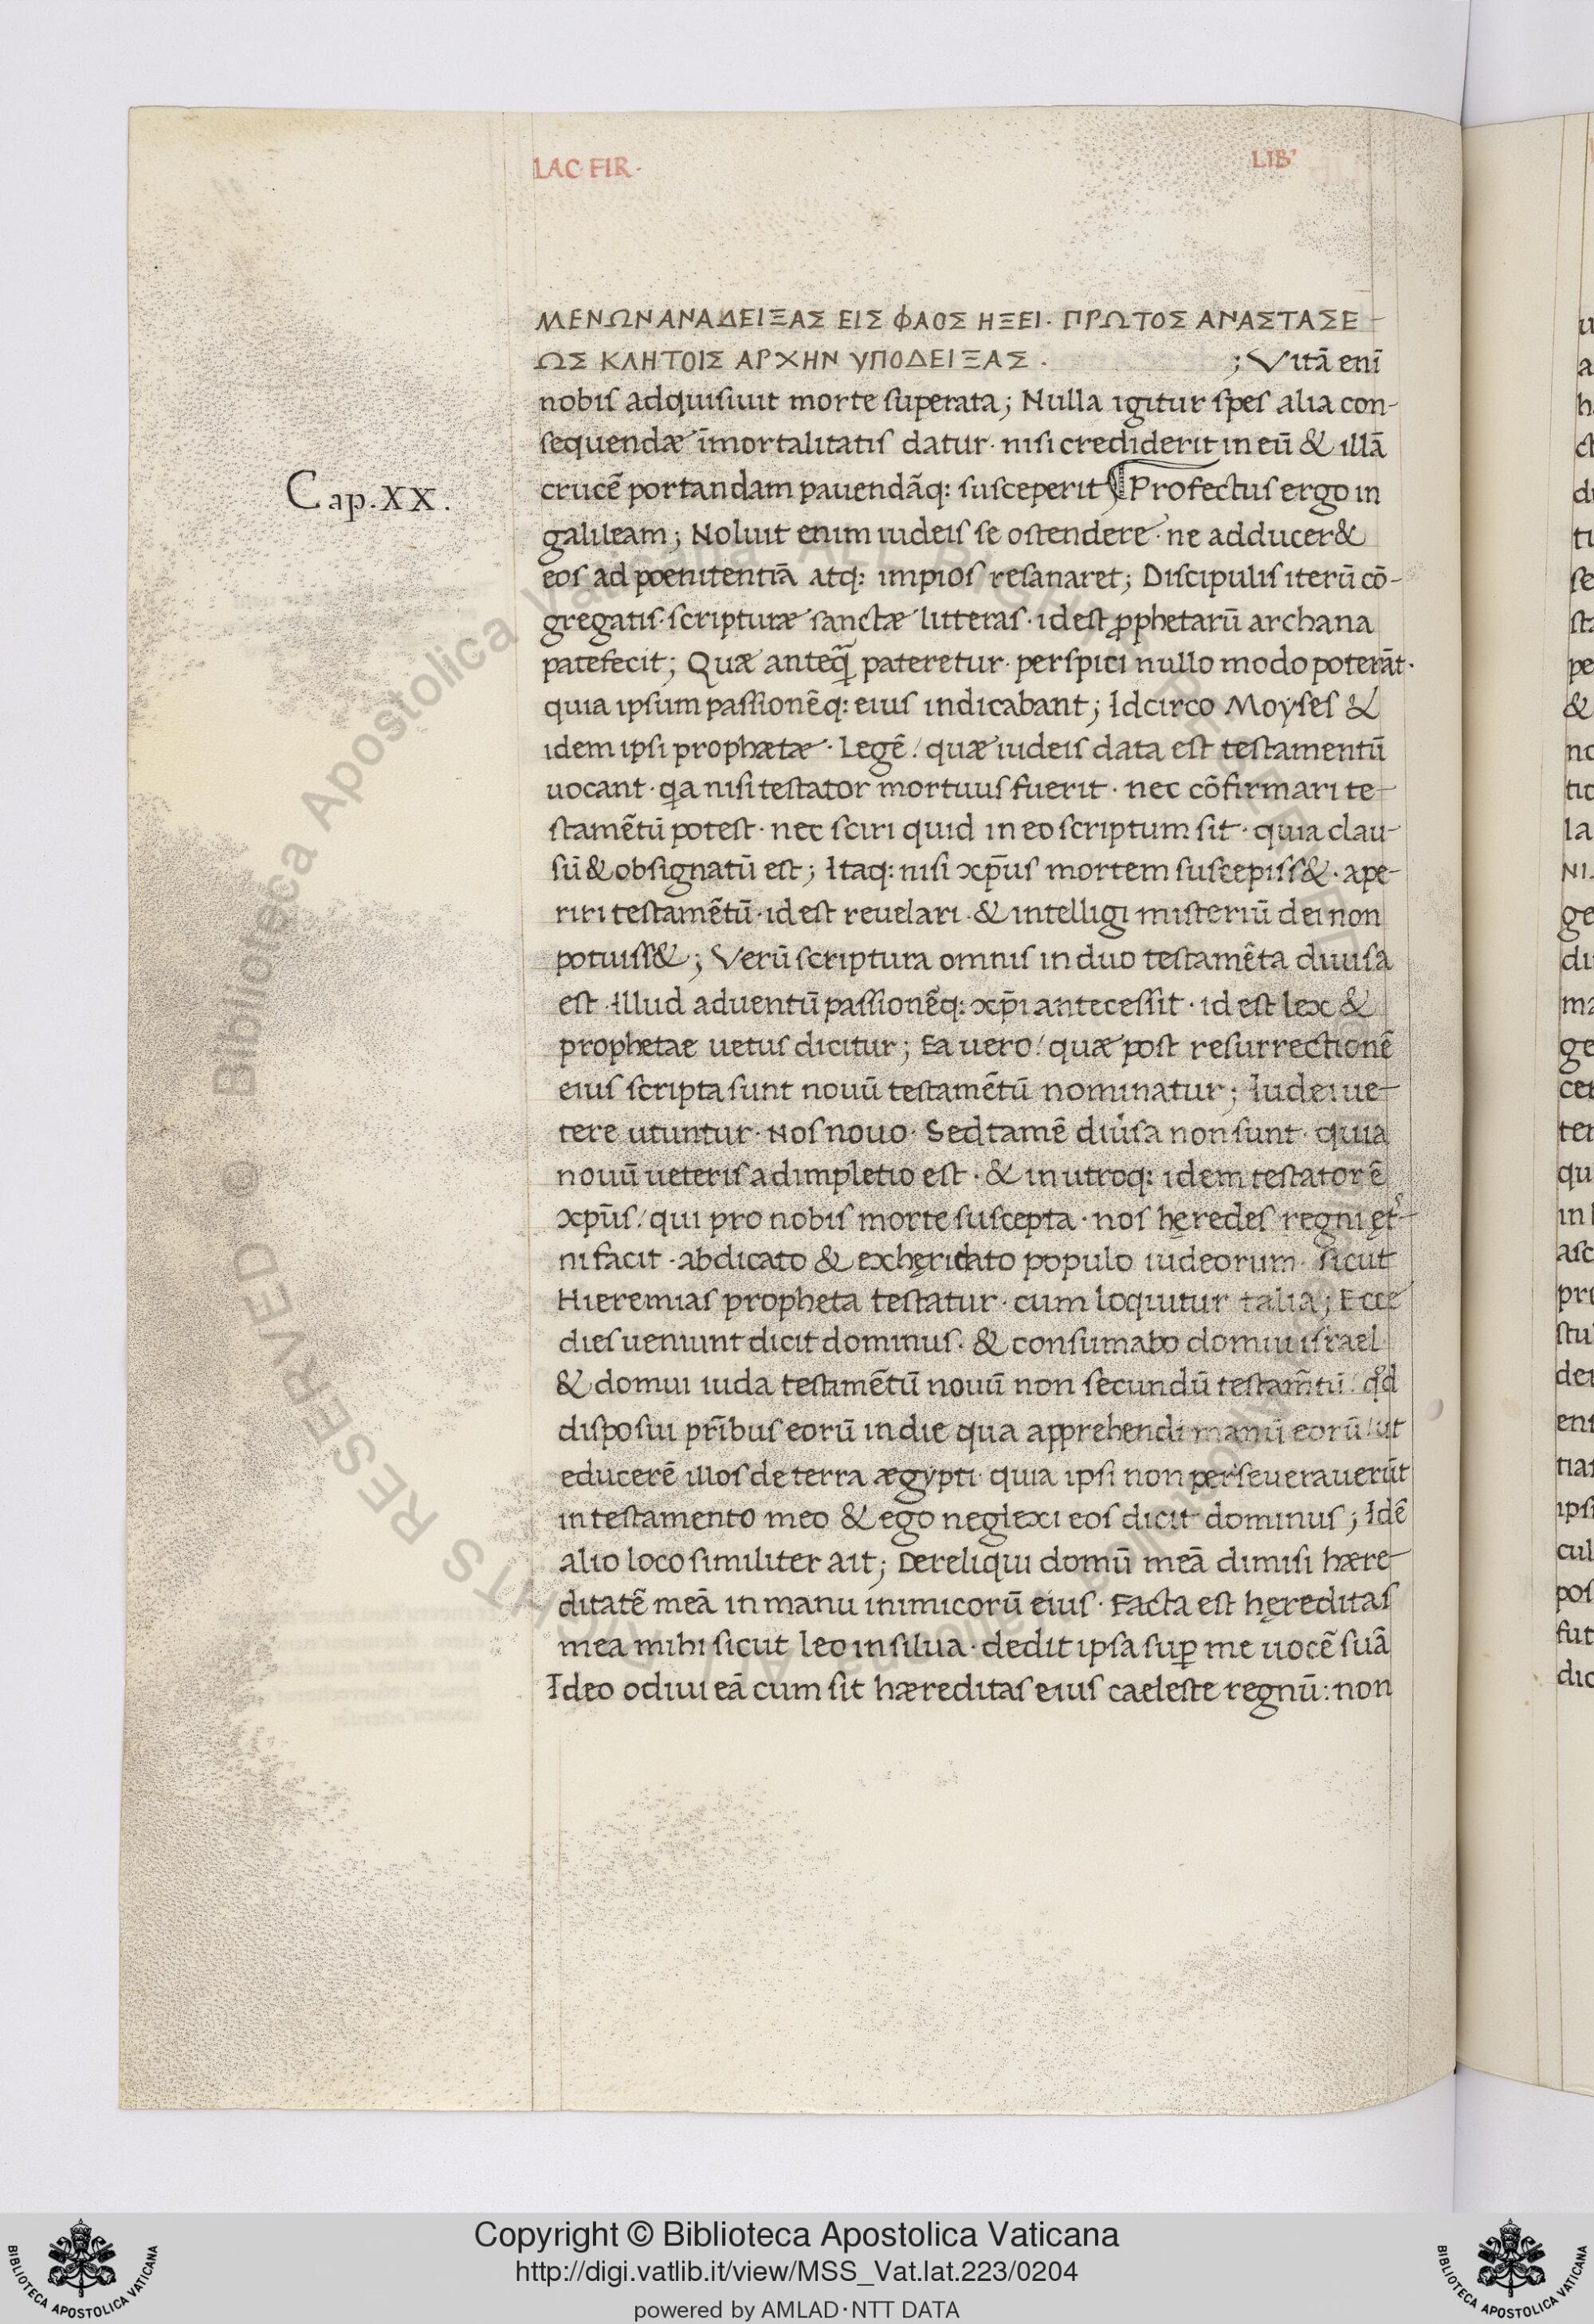 LAC FIR· LIB'
ΜΕΝΩΝ ΑΝΑΔΕΙΞΑΣ ΕΙΣ ΦΑΟΣ ΗΞΕΙ· ΠΡΩΤΟΣ ΑΝΑΣΤΑΣΕ-
ΩΣ ΚΛΗΤΟΙΣ ΑΡΧΗΝ ΥΠΟΔΕΙΞΑΣ . ; Vitā enī
nobis adquisiuit morte superata; Nulla igitur spes alia con-
sequendæ īmortalitatis datur· nisi crediderit in eū & illā
Cap.XX.
crucē portandam pauendāq: susceperit ¶ Profectus ergo in
galileam; Noluit enim iudeis se ostendere· ne adducer&
eos ad poenitentiā atq: impios resanaret; Discipulis iterū cō-
gregatis· scripturæ sanctæ litteras· id est ꝓphetarū archana
patefecit; Quæ anteq̄ pateretur· perspici nullo modo poterāt·
quia ipsum passionēq: eius indicabant; Idcirco Moyses &
idem ipsi prophætæ· Legē/ quæ iudeis data est testamentū
uocant· qa nisi testator mortuus fuerit· nec cōfirmari te-
stamētū potest· nec sciri quid in eo scriptum sit· quia clau-
sū & obsignatū est; Itaq: nisi xp̄us mortem suscepiss&· ape-
riri testamētū· id est reuelari· & intelligi misteriū dei non
potuiss&; Verū scriptura omnis in duo testamēta diuisa
est· Illud aduentū passionēq: xp̄i antecessit· id est lex &
prophetae uetus dicitur; Ea uero/ quæ post resurrectionē
eius scripta sunt nouū testamētū nominatur; Iudei ue-
tere utuntur· Nos nouo· Sed tamē diūsa non sunt· quia
nouū ueteris adimpletio est· & in utroq: idem testator ē
xp̄us/ qui pro nobis morte suscepta· nos hęredes regni ęt-
ni facit· abdicato & exhęridato populo iudeorum· sicut
Hieremias propheta testatur· cum loquitur talia; Ecce
dies ueniunt dicit dominus· & consumabo domui israel·
& domui iuda testamētū nouū non secundū testam̄tū/ qd
disposui pr̄ibus eorū in die qua apprehendi manū eorū/ ut
educerē illos de terra ægypti· quia ipsi non perseuerauerūt
in testamento meo & ego neglexi eos dicit dominus; Idē
alio loco similiter ait; Dereliqui domū meā dimisi hære-
ditatē meā in manu inimicorū eius· Facta est hęreditas
mea mihi sicut leo in silua· dedit ipsa suꝑ me uocē suā
Ideo odiui eā cum sit hæreditas eius caeleste regnū: non
© Biblioteca Apostolica Vaticana
RESERVED
Copyright © Biblioteca Apostolica Vaticana
http://digi.vatlib.it/view/MSS_Vat.lat.223/0204
powered by AMLAD·NTT DATA
BIBLIOTECA APOSTOLICA VATICANA
BIBLIOTECA APOSTOLICA VATICANA